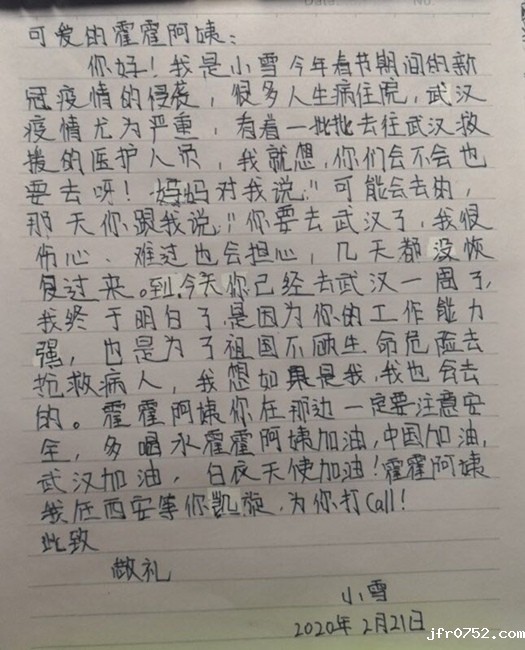 可爱的霍霍阿姨:
你好!我是小雪今年春节期间的新
冠疫情的侵袭,很多人生病住院,武汉
疫情尤为严重,有着一批批去往武汉救
援的医护人员,我就想,你们会不会也
要去呀!妈妈对我说:"可能会去的,
那天你跟我说:"你要去武汉了,我很
伤心、难过也会担心,几天都没恢
复过来。到今天你已经去武汉一周了,
我终于明白了是因为你的工作能力
强,也是为了祖国不顾生命危险去
抢救病人,我想如果是我,我也会去
的。霍霍阿姨你在那边一定要注意安
全,多喝水霍霍阿姨加油,中国加油,
武汉加油,白衣天使加油!霍霍阿姨
我在西安等你凯旋,为你打Call!
此致
敬礼
小雪
2020年2月21日
jfr0752.com